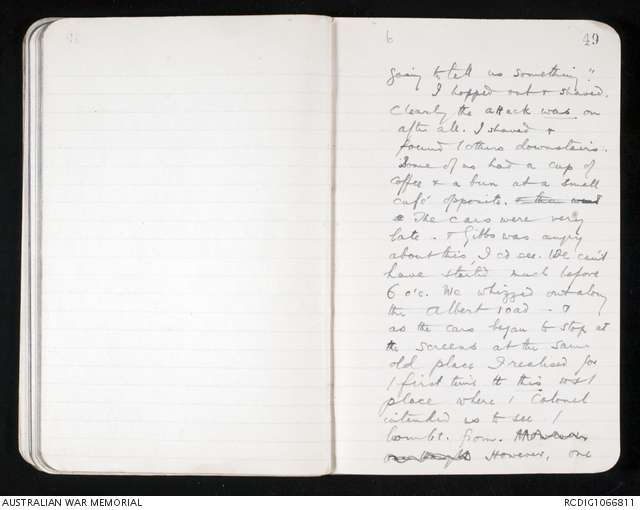 6
49
going to tell us something"
I hopped out & shaved.
Clearly the attack was on
after all. I shaved &
found / others downstairs.
Some of us had a cup of
coffee & a bun at a small
café opposite.
The cars were very
late - & Gibbs was angry
about this, I cd see. We can't
have started much before
6 o'c. We whizzed out along
the Albert road - &
as the cars began to stop at
the screens at the same
old place I realised for
/ first time tt this ws /
place where / Colonel
intended us to see /
bombt. from.
However, one
AUSTRALIAN WAR MEMORIAL
RCDIG1066811